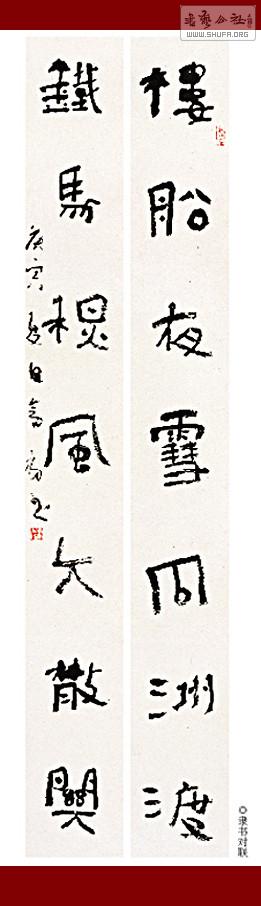 书艺公社
WWW.SHUFA.ORG
樓船夜雪瓜洲渡
鐵馬秋風大散關
庚寅夏日
◎隶书对联